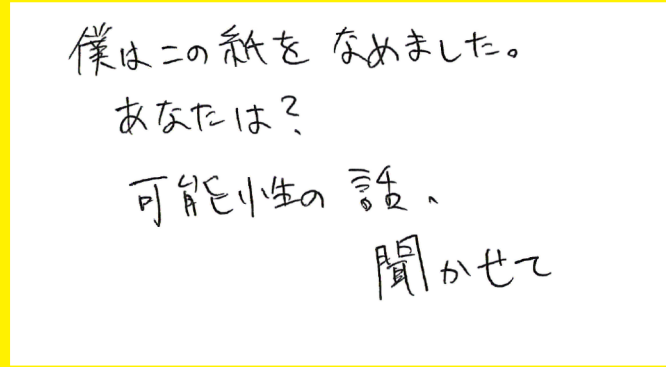 僕はこの紙を なめました。
あなたは?
可能性の 話、
聞かせて